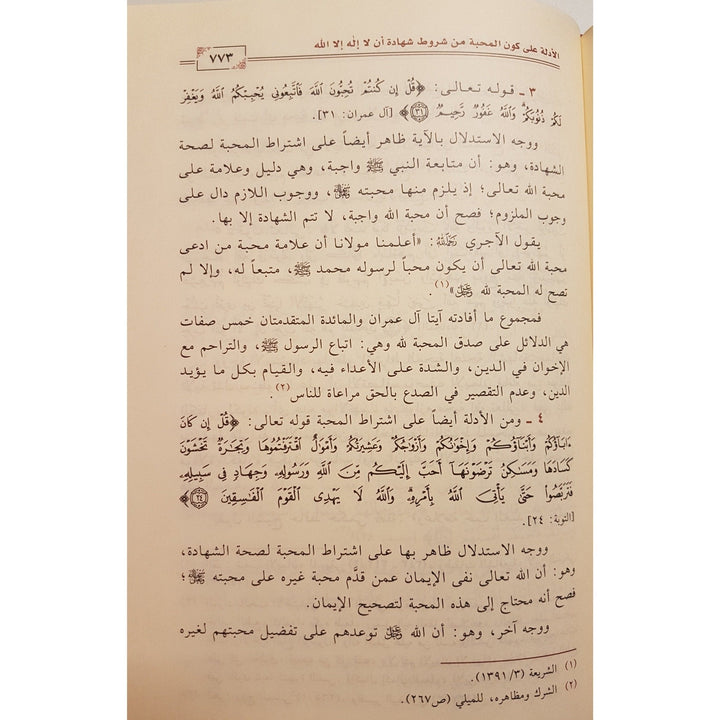 الأدلة على كون المحبة من شروط شهادة أن لا إله إلا الله
٧٧٣
٣ ـ قوله تعالى: ﴿قُلْ إِن كُنتُمْ تُحِبُّونَ اللَّهَ فَاتَّبِعُونِي يُحْبِبْكُمُ اللَّهُ وَيَغْفِرْ
لَكُمْ ذُنُوبَكُمْ وَاللَّهُ غَفُورٌ رَّحِيمٌ ٣١﴾ [آل عمران: ٣١].
ووجه الاستدلال بالآية ظاهر أيضاً على اشتراط المحبة لصحة
الشهادة، وهو: أن متابعة النبي ﷺ واجبة، وهي دليل وعلامة على
محبة الله تعالى؛ إذ يلزم منها محبته ﷻ، ووجوب اللازم دال على
وجوب الملزوم؛ فصح أن محبة الله واجبة، لا تتم الشهادة إلا بها.
يقول الآجري رحمه الله: «أعلمنا مولانا أن علامة محبة من ادعى
محبة الله تعالى أن يكون محباً لرسوله محمد ﷺ، متبعاً له، وإلا لم
تصح له المحبة لله ﷻ»(١).
فمجموع ما أفادته آيتا آل عمران والمائدة المتقدمتان خمس صفات
هي الدلائل على صدق المحبة لله وهي: اتباع الرسول ﷺ، والتراحم مع
الإخوان في الدين، والشدة على الأعداء فيه، والقيام بكل ما يؤيد
الدين، وعدم التقصير في الصدع بالحق مراعاة للناس(٢).
٤ ـ ومن الأدلة أيضاً على اشتراط المحبة قوله تعالى: ﴿قُلْ إِن كَانَ
ءَابَاؤُكُمْ وَأَبْنَاؤُكُمْ وَإِخْوَانُكُمْ وَأَزْوَاجُكُمْ وَعَشِيرَتُكُمْ وَأَمْوَالٌ اقْتَرَفْتُمُوهَا وَتِجَارَةٌ تَخْشَوْنَ
كَسَادَهَا وَمَسَاكِنُ تَرْضَوْنَهَا أَحَبَّ إِلَيْكُم مِّنَ اللَّهِ وَرَسُولِهِ وَجِهَادٍ فِي سَبِيلِهِ
فَتَرَبَّصُوا حَتَّى يَأْتِيَ اللَّهُ بِأَمْرِهِ وَاللَّهُ لَا يَهْدِي الْقَوْمَ الْفَاسِقِينَ ٢٤﴾
[التوبة: ٢٤].
ووجه الاستدلال ظاهر بها على اشتراط المحبة لصحة الشهادة،
وهو: أن الله تعالى نفى الإيمان عمن قدَّم محبة غيره على محبته ﷻ؛
فصح أنه محتاج إلى هذه المحبة لتصحيح الإيمان.
ووجه آخر، وهو: أن الله ﷻ توعدهم على تفضيل محبتهم لغيره
(١) الشريعة (٣/ ١٣٩١).
(٢) الشرك ومظاهره، للميلي (ص٢٦٧).